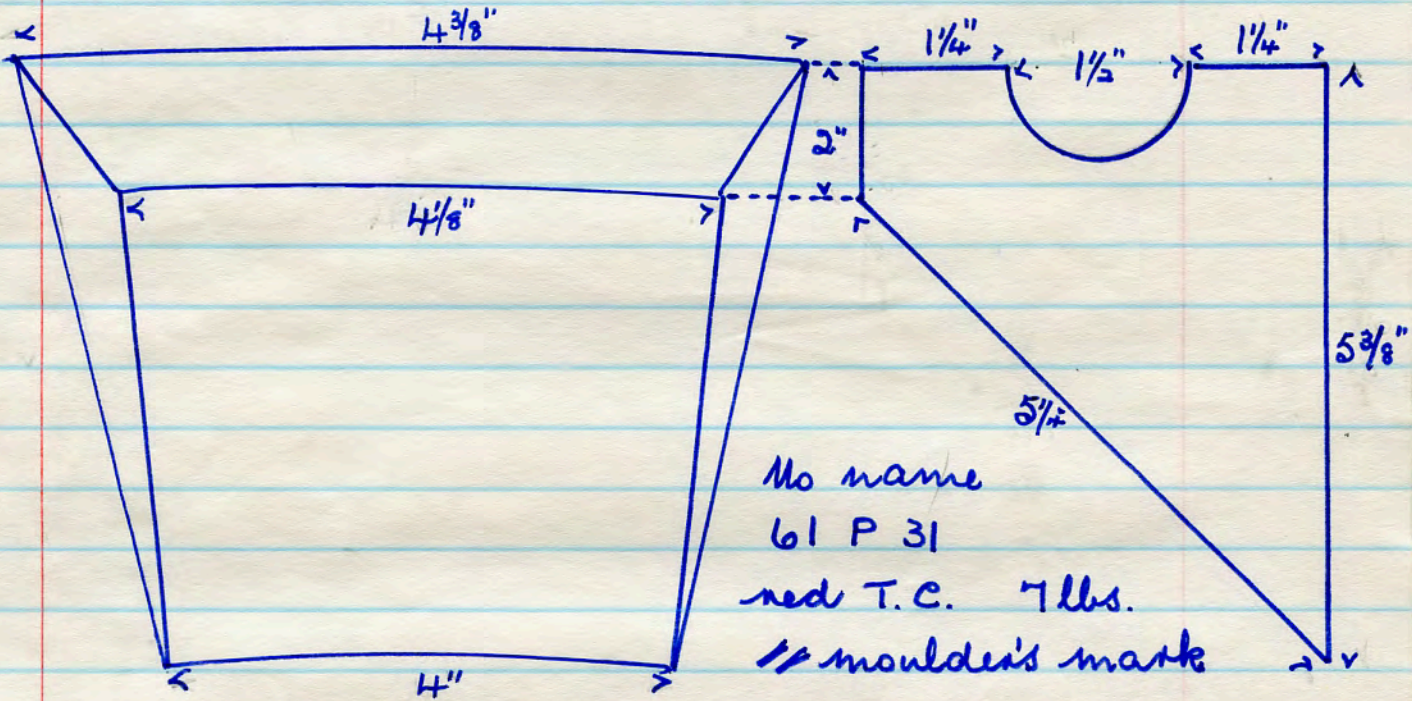 4 3/8"
1 1/4"
1 1/2"
1 1/4"
2"
4 1/8"
5 3/8"
5 1/4
No name
61 P 31
red T.C. 7 lbs.
// moulder's mark
4"